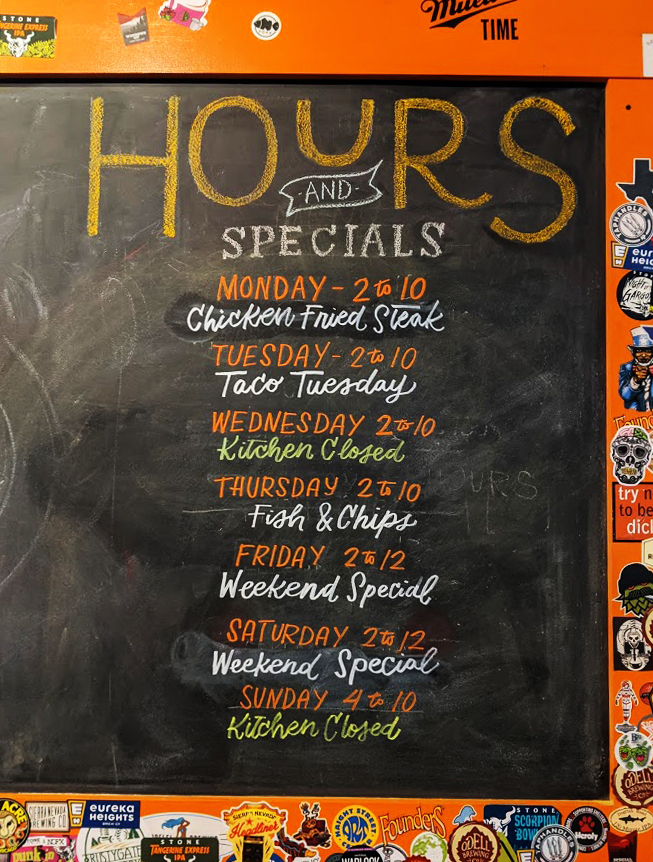 STONE
TANGERINE EXPRESS
IPA
TIME
HOURS
AND
SPECIALS
MONDAY - 2 to 10
Chicken Fried Steak
TUESDAY - 2 to 10
Taco Tuesday
WEDNESDAY 2 to 10
Kitchen Closed
THURSDAY 2 to 10
Fish & Chips
FRIDAY 2 to 12
Weekend Special
SATURDAY 2 to 12
Weekend Special
SUNDAY 4 to 10
Kitchen Closed
URS
try n
to be
dick
SIERRA NEVADA
eureka
HEIGHTS
STONE
TANGERINE EXPRESS
IPA
SIERRA NEVADA
Headliner
Founders
ODELL
BREWING
STONE
SCORPION
BOWL
ODELL
BREWING